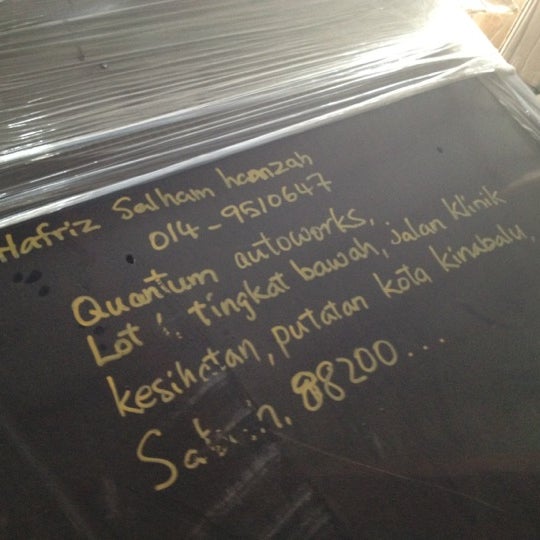 Hafriz Salham hamzah
014-9510647
Quantum autoworks,
Lot tingkat bawah, jalan Klinik
kesihatan, putatan kota kinabalu,
88200...